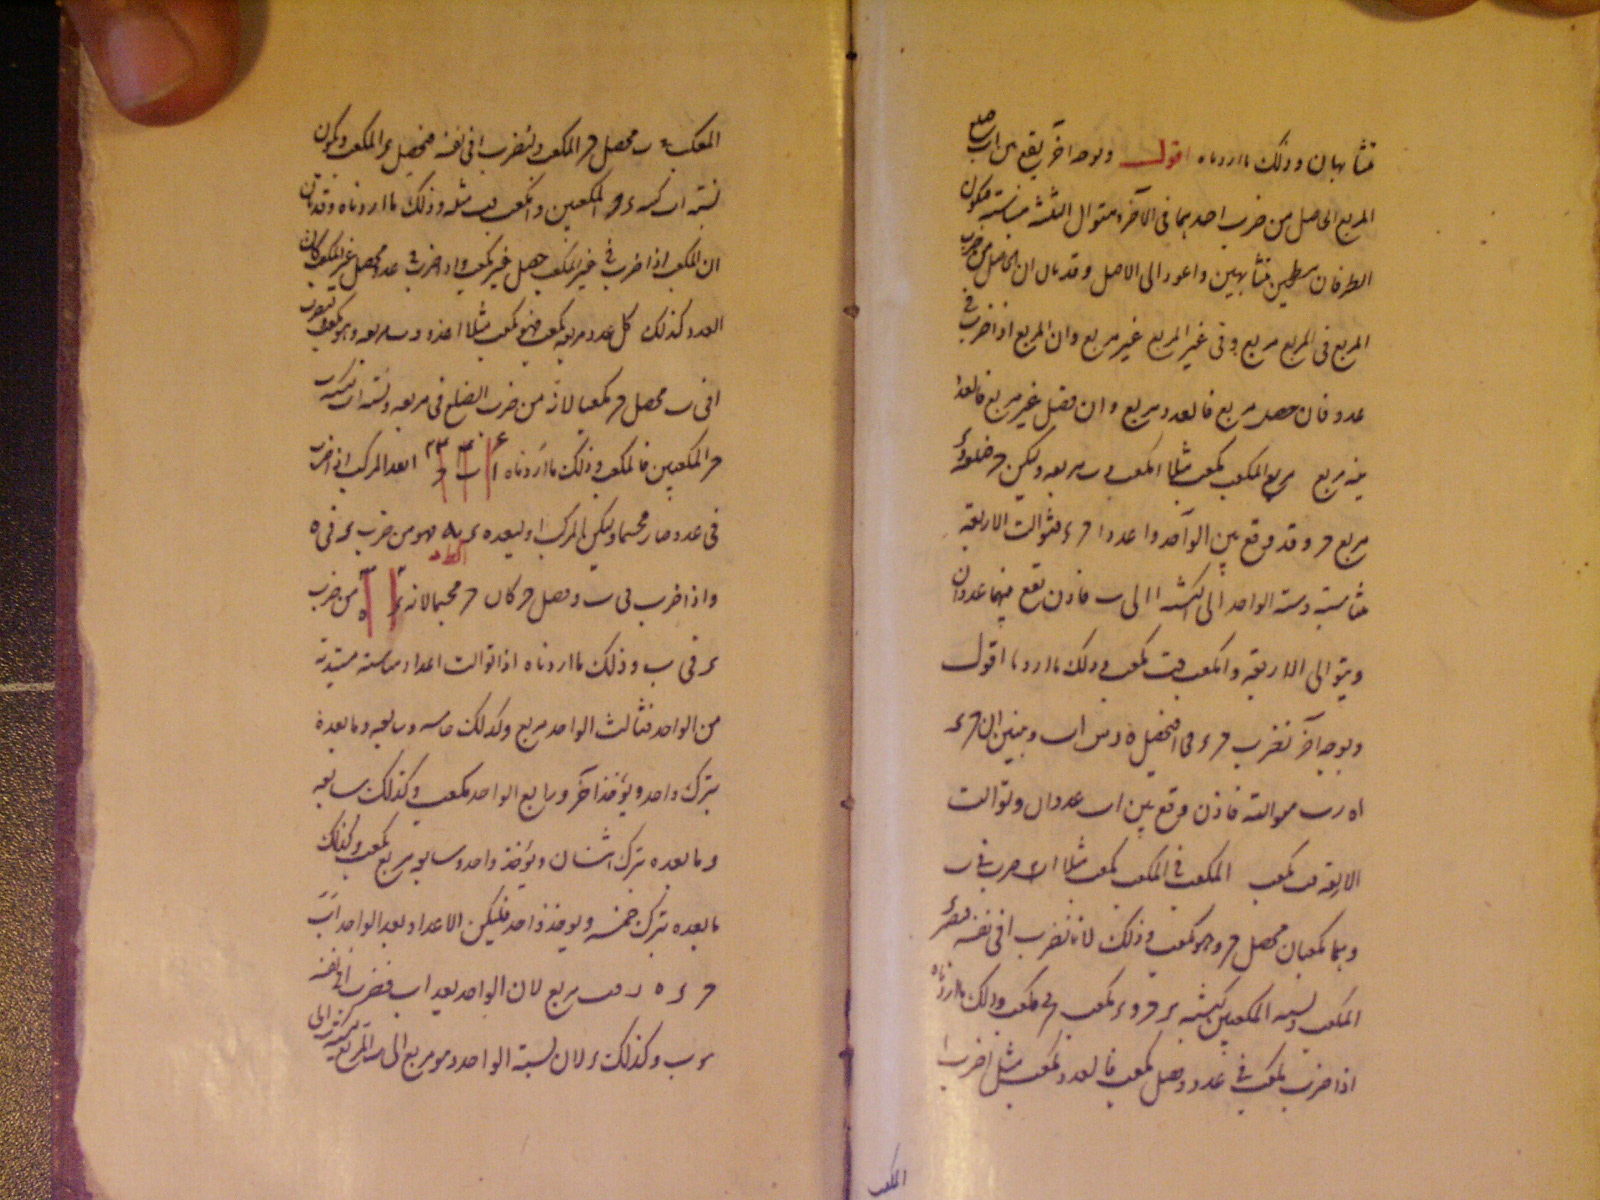 متشابهان وذلك ما اردناه اقول وبوجه آخر يقع بين اب ضلع
المربع الحاصل من ضرب احدهما فى الآخر متوال الثلثة متناسبة فيكون
الطرفان مسطحين متشابهين واعود الى الاصل وقد بان ان الحاصل من ضرب
المربع فى المربع مربع وفى غير المربع غير مربع وان المربع اذا ضرب فى
عدد فان حصل مربع فالعدد مربع وان حصل غير مربع فالعدد
غير مربع مربع المكعب مكعب مثلا ا مكعب و ب مربعه وليكن ح ضلعه و ء
مربع ح وقد وقع بين الواحد و ا عددا ح ء فتوالت الاربعة
متناسبة ونسبة الواحد الى ا كنسبة ا الى ب فاذن يقع بينهما عددان
ويتوالى الاربعة و ا مكعب فب مكعب وذلك ما اردناه اقول
وبوجه آخر نضرب ح ء فى ا فيحصل ه ر بين ا ب وتبين ان ح ء
ا ه ر ب متوالية فاذن وقع بين ا ب عددان وتوالت
الاربعة فب مكعب المكعب فى المكعب مكعب مثلا ا ضرب فى ب
وهما مكعبان فحصل ح وهو مكعب وذلك لانا نضرب ا فى نفسه فيصير ء
المكعب ونسبة المكعبين كنسبة ء ح و ء مكعب فح مكعب وذلك ما اردناه
اذا ضرب مكعب فى عدد وحصل مكعب فالعدد مكعب مثلا ضرب ا
المكعب
المكعب فى ب فحصل ح المكعب ولنضرب ا فى نفسه فيحصل ء المكعب ويكون
نسبة ا ب كنسبة ء ح المكعبين و ا مكعب فب مثله وذلك ما اردناه وقد بان
ان المكعب اذا ضرب فى غير المكعب حصل غير مكعب واذا ضرب فى عدد فحصل غير المكعب كان
العدد كذلك كل عدد مربعه مكعب فهو مكعب مثلا ا عدد و ب مربعه وهو مكعب ونضرب
ا فى ب فحصل ح مكعبا لانه من ضرب الضلع فى مربعه ونسبة ا ب كنسبة ب
ح المكعبين فا مكعب وذلك ما اردناه العدد المركب اذا ضرب
فى عدد صار مجسما وليكن المركب ا وليعده ء به فهو من ضرب ء فى ه
واذا ضرب فى ب وحصل ح كان ح مجسما لانه من ضرب
ء فى ب وذلك ما اردناه اذا توالت اعداد متناسبة مبتدئة
من الواحد فثالث الواحد مربع وكذلك خامسه وسابعه وما بعده
بترك واحد ويؤخذ آخر ورابع الواحد مكعب وكذلك سابعه
وما بعده بترك اثنان ويؤخذ واحد وسابعه مربع مكعب وكذلك
ما بعده بترك خمسة ويوخذ واحد فليكن الاعداد بعد الواحد ا ب
ح ء ه ر فب مربع لان الواحد يعد ا ب فضرب ا فى نفسه
ء ب وكذلك ء لان نسبة الواحد وهو مربع الى ب المربع كنسبته الى